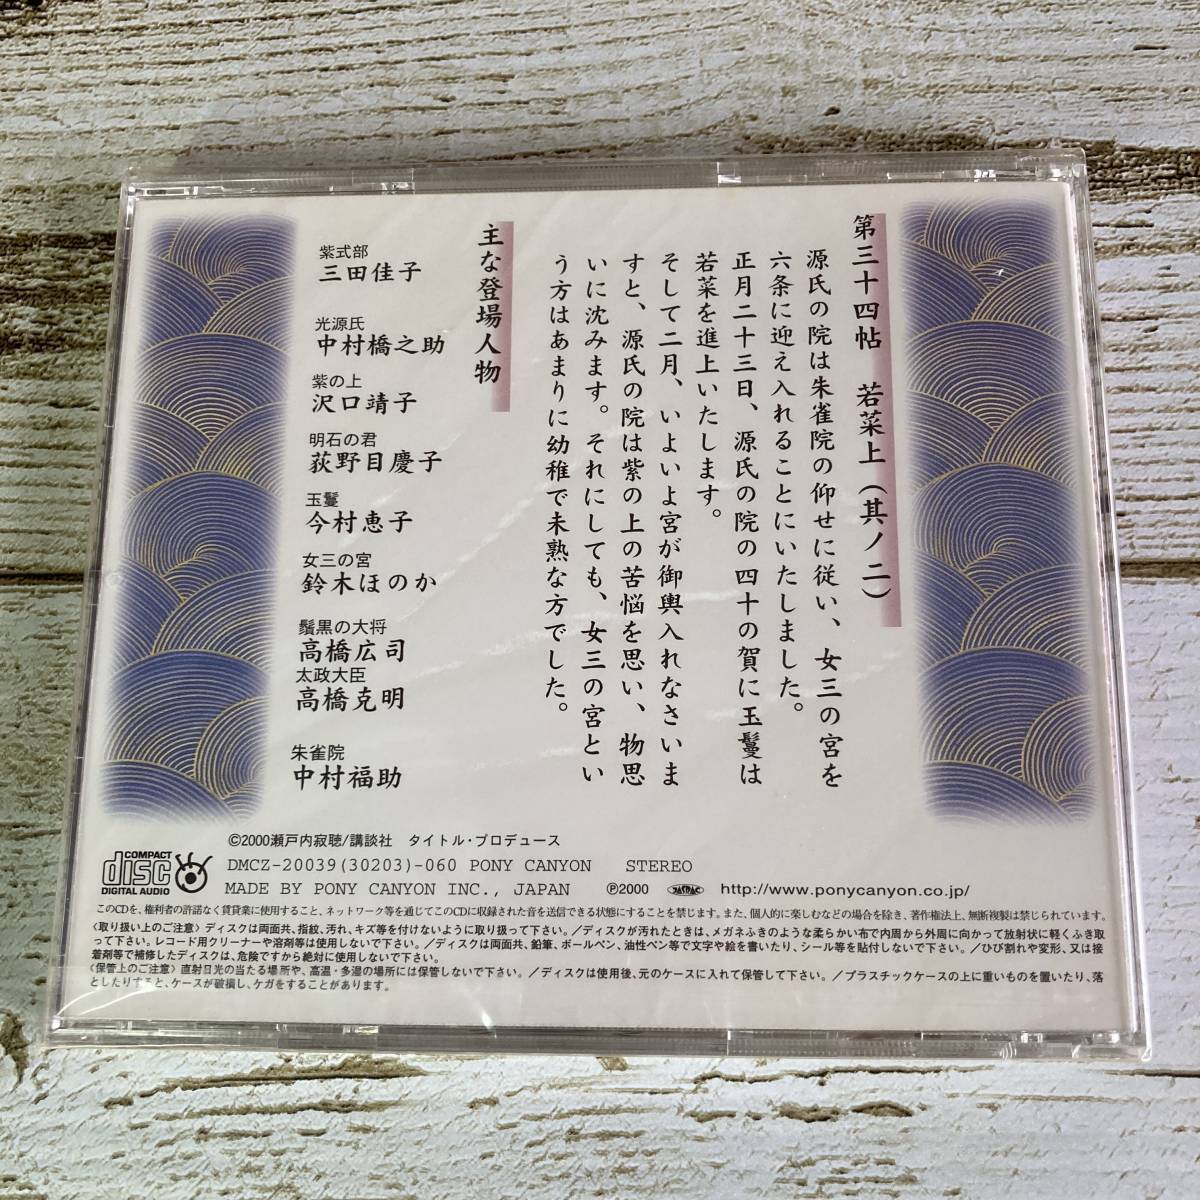 第三十四帖　若菜上（其ノ二）
源氏の院は朱雀院の仰せに従い、女三の宮を
六条に迎え入れることにいたしました。
正月二十三日、源氏の院の四十の賀に玉鬘は
若菜を進上いたします。
そして二月、いよいよ宮が御輿入れなさいま
すと、源氏の院は紫の上の苦悩を思い、物思
いに沈みます。それにしても、女三の宮とい
う方はあまりに幼稚で未熟な方でした。
主な登場人物
紫式部
三田佳子
光源氏
中村橋之助
紫の上
沢口靖子
明石の君
荻野目慶子
玉鬘
今村恵子
女三の宮
鈴木ほのか
鬚黒の大将
高橋広司
太政大臣
高橋克明
朱雀院
中村福助
©2000瀬戸内寂聴/講談社　タイトル・プロデュース
COMPACT
disc
DIGITAL AUDIO
DMCZ-20039(30203)-060 PONY CANYON　STEREO
MADE BY PONY CANYON INC., JAPAN　℗2000　JASRAC　http://www.ponycanyon.co.jp/
このCDを、権利者の許諾なく賃貸業に使用すること、ネットワーク等を通じてこのCDに収録された音を送信できる状態にすることを禁じます。また、個人的に楽しむなどの場合を除き、著作権法上、無断複製は禁じられています。
〈取り扱い上のご注意〉ディスクは両面共、指紋、汚れ、キズ等を付けないように取り扱って下さい。／ディスクが汚れたときは、メガネふきのような柔らかい布で内周から外周に向かって放射状に軽くふき取
って下さい。レコード用クリーナーや溶剤等は使用しないで下さい。／ディスクは両面共、鉛筆、ボールペン、油性ペン等で文字や絵を書いたり、シール等を貼付しないで下さい。／ひび割れや変形、又は接
着剤等で補修したディスクは、危険ですから絶対に使用しないで下さい。
〈保管上のご注意〉直射日光の当たる場所や、高温・多湿の場所には保管しないで下さい。／ディスクは使用後、元のケースに入れて保管して下さい。／プラスチックケースの上に重いものを置いたり、落
としたりすると、ケースが破損し、ケガをすることがあります。